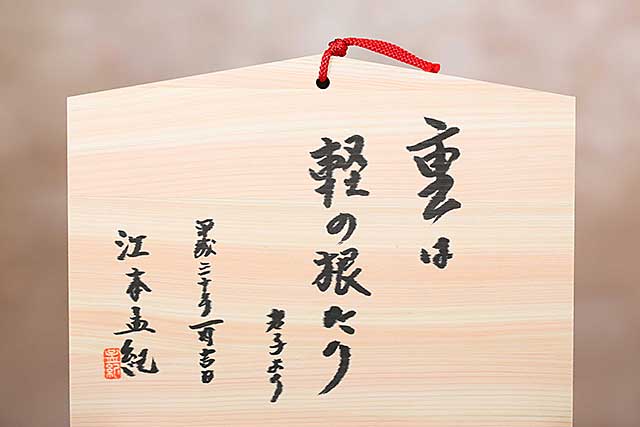 重は
軽の根たり
老子より
平成二十年一月吉日
江本孟紀